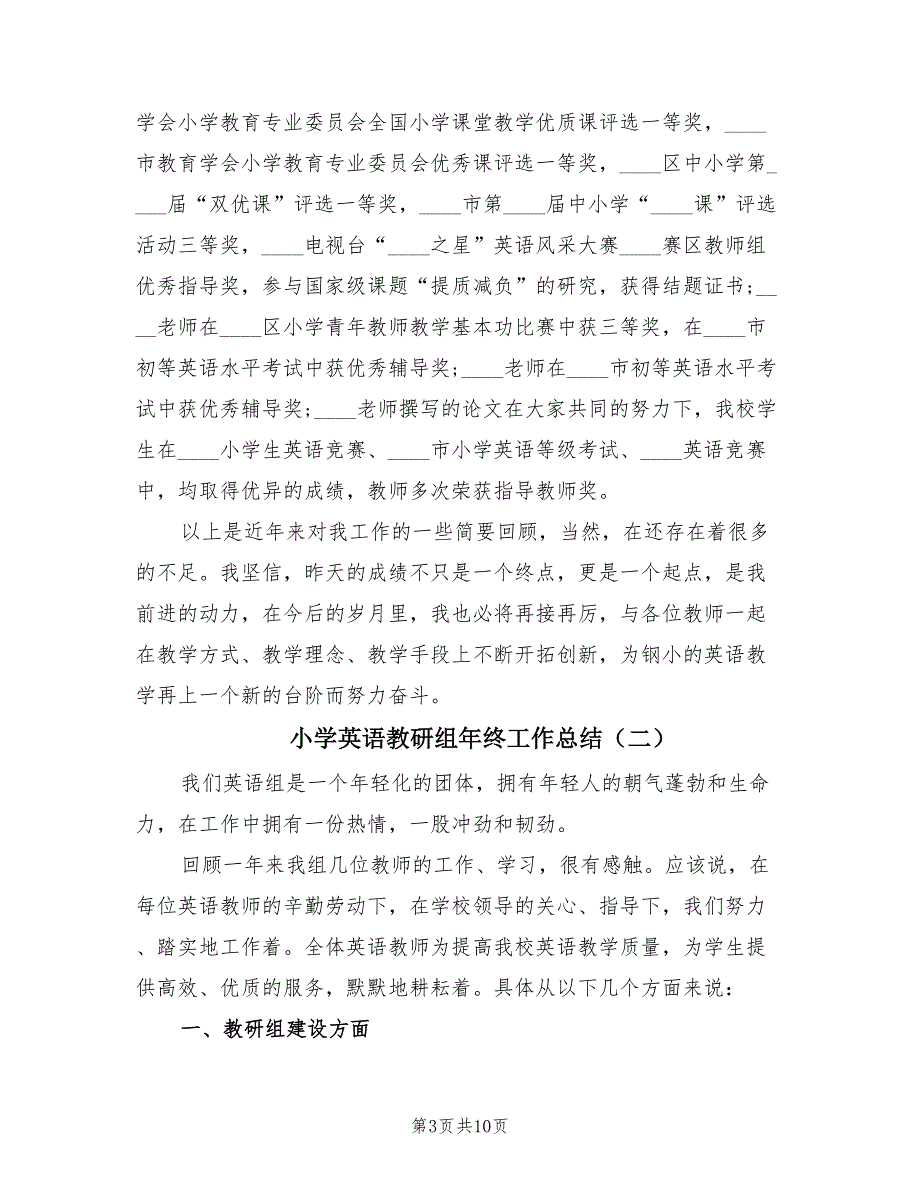 学会小学教育专业委员会全国小学课堂教学优质课评选一等奖，____
市教育学会小学教育专业委员会优秀课评选一等奖，____区中小学第_
___届“双优课”评选一等奖，____市第____届中小学“____课”评选
活动三等奖，____电视台“____之星”英语风采大赛____赛区教师组
优秀指导奖，参与国家级课题“提质减负”的研究，获得结题证书;__
__老师在____区小学青年教师教学基本功比赛中获三等奖，在____市
初等英语水平考试中获优秀辅导奖;____老师在____市初等英语水平考
试中获优秀辅导奖;____老师撰写的论文在大家共同的努力下，我校学
生在____小学生英语竞赛、____市小学英语等级考试、____英语竞赛
中，均取得优异的成绩，教师多次荣获指导教师奖。
以上是近年来对我工作的一些简要回顾，当然，在还存在着很多
的不足。我坚信，昨天的成绩不只是一个终点，更是一个起点，是我
前进的动力，在今后的岁月里，我也必将再接再厉，与各位教师一起
在教学方式、教学理念、教学手段上不断开拓创新，为钢小的英语教
学再上一个新的台阶而努力奋斗。
小学英语教研组年终工作总结（二）
我们英语组是一个年轻化的团体，拥有年轻人的朝气蓬勃和生命
力，在工作中拥有一份热情，一股冲劲和韧劲。
回顾一年来我组几位教师的工作、学习，很有感触。应该说，在
每位英语教师的辛勤劳动下，在学校领导的关心、指导下，我们努力
、踏实地工作着。全体英语教师为提高我校英语教学质量，为学生提
供高效、优质的服务，默默地耕耘着。具体从以下几个方面来说：
一、教研组建设方面
第3页共10页